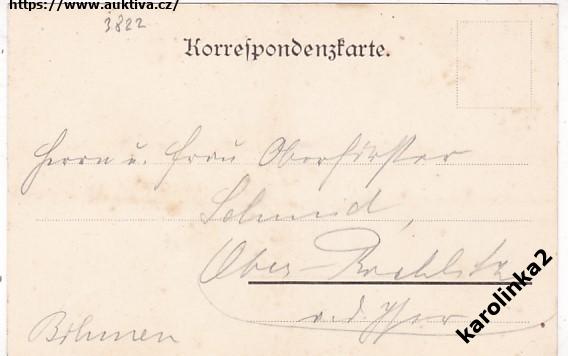 https://www.auktiva.cz/
3822
Korrespondenzkarte.
Herrn u. Frau Oberförster
Schmid,
Ober-Rochlitz
a. d. Iser
Böhmen
karolinka2